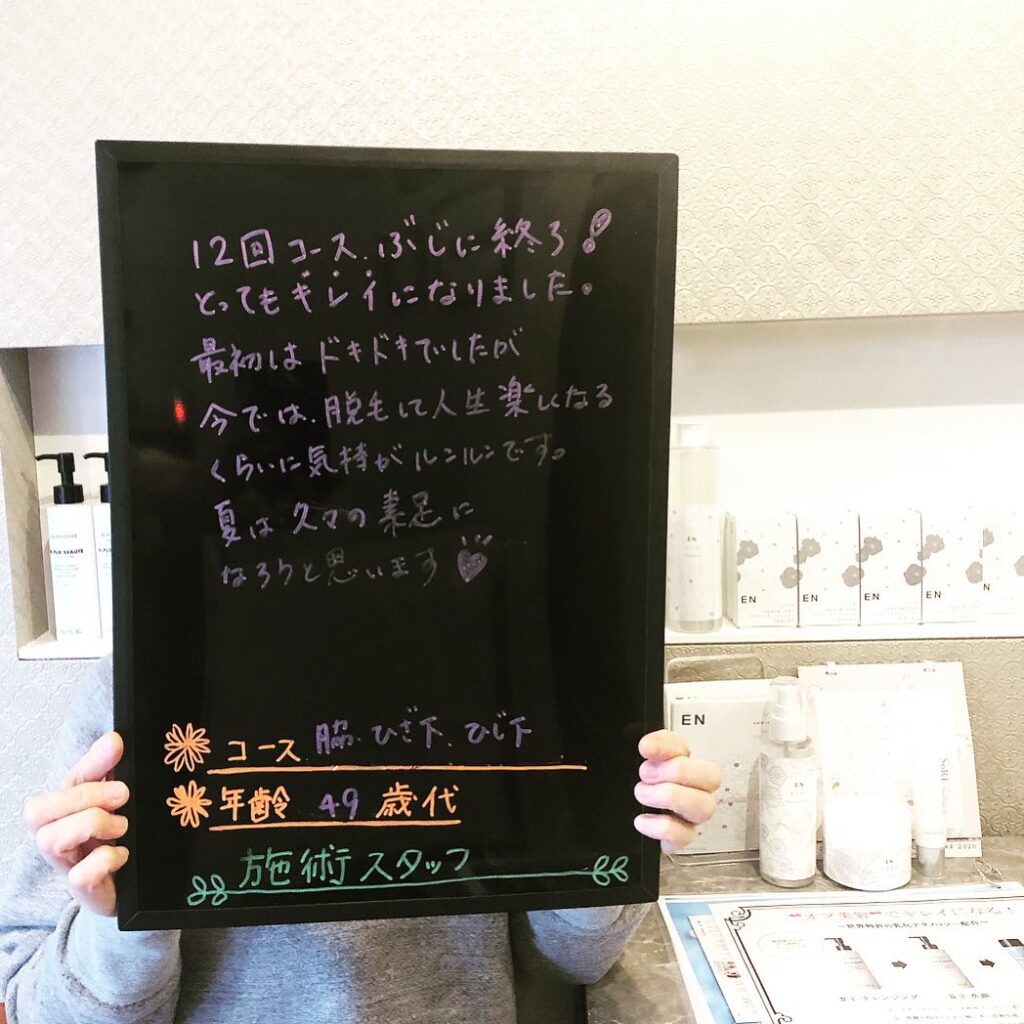 12回コース、ぶじに終了!
とってもキレイになりました。
最初はドキドキでしたが
今では、脱毛して人生楽しくなる
くらいに気持がルンルンです。
夏は久々の素足に
なろうと思います
コース 脇、ひざ下、ひじ下
年齢 49 歳代
施術スタッフ
EN
EN
EN
EN
EN
N
EN
EN
EN
SoRé
2020
〜世界特許の乳化テクノロジー配合〜